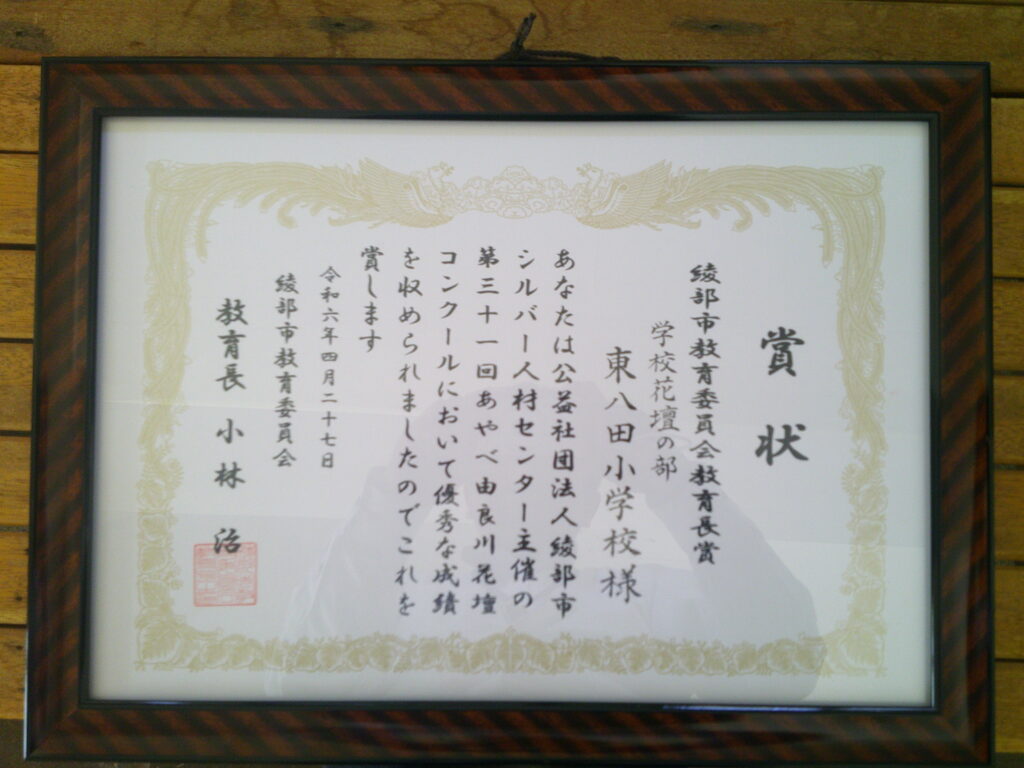 賞状
綾部市教育委員会教育長賞
学校花壇の部
東八田小学校様
あなたは公益社団法人綾部市
シルバー人材センター主催の
第三十一回あやべ由良川花壇
コンクールにおいて優秀な成績
を収められましたのでこれを
賞します
令和六年四月二十七日
綾部市教育委員会
教育長 小林 治